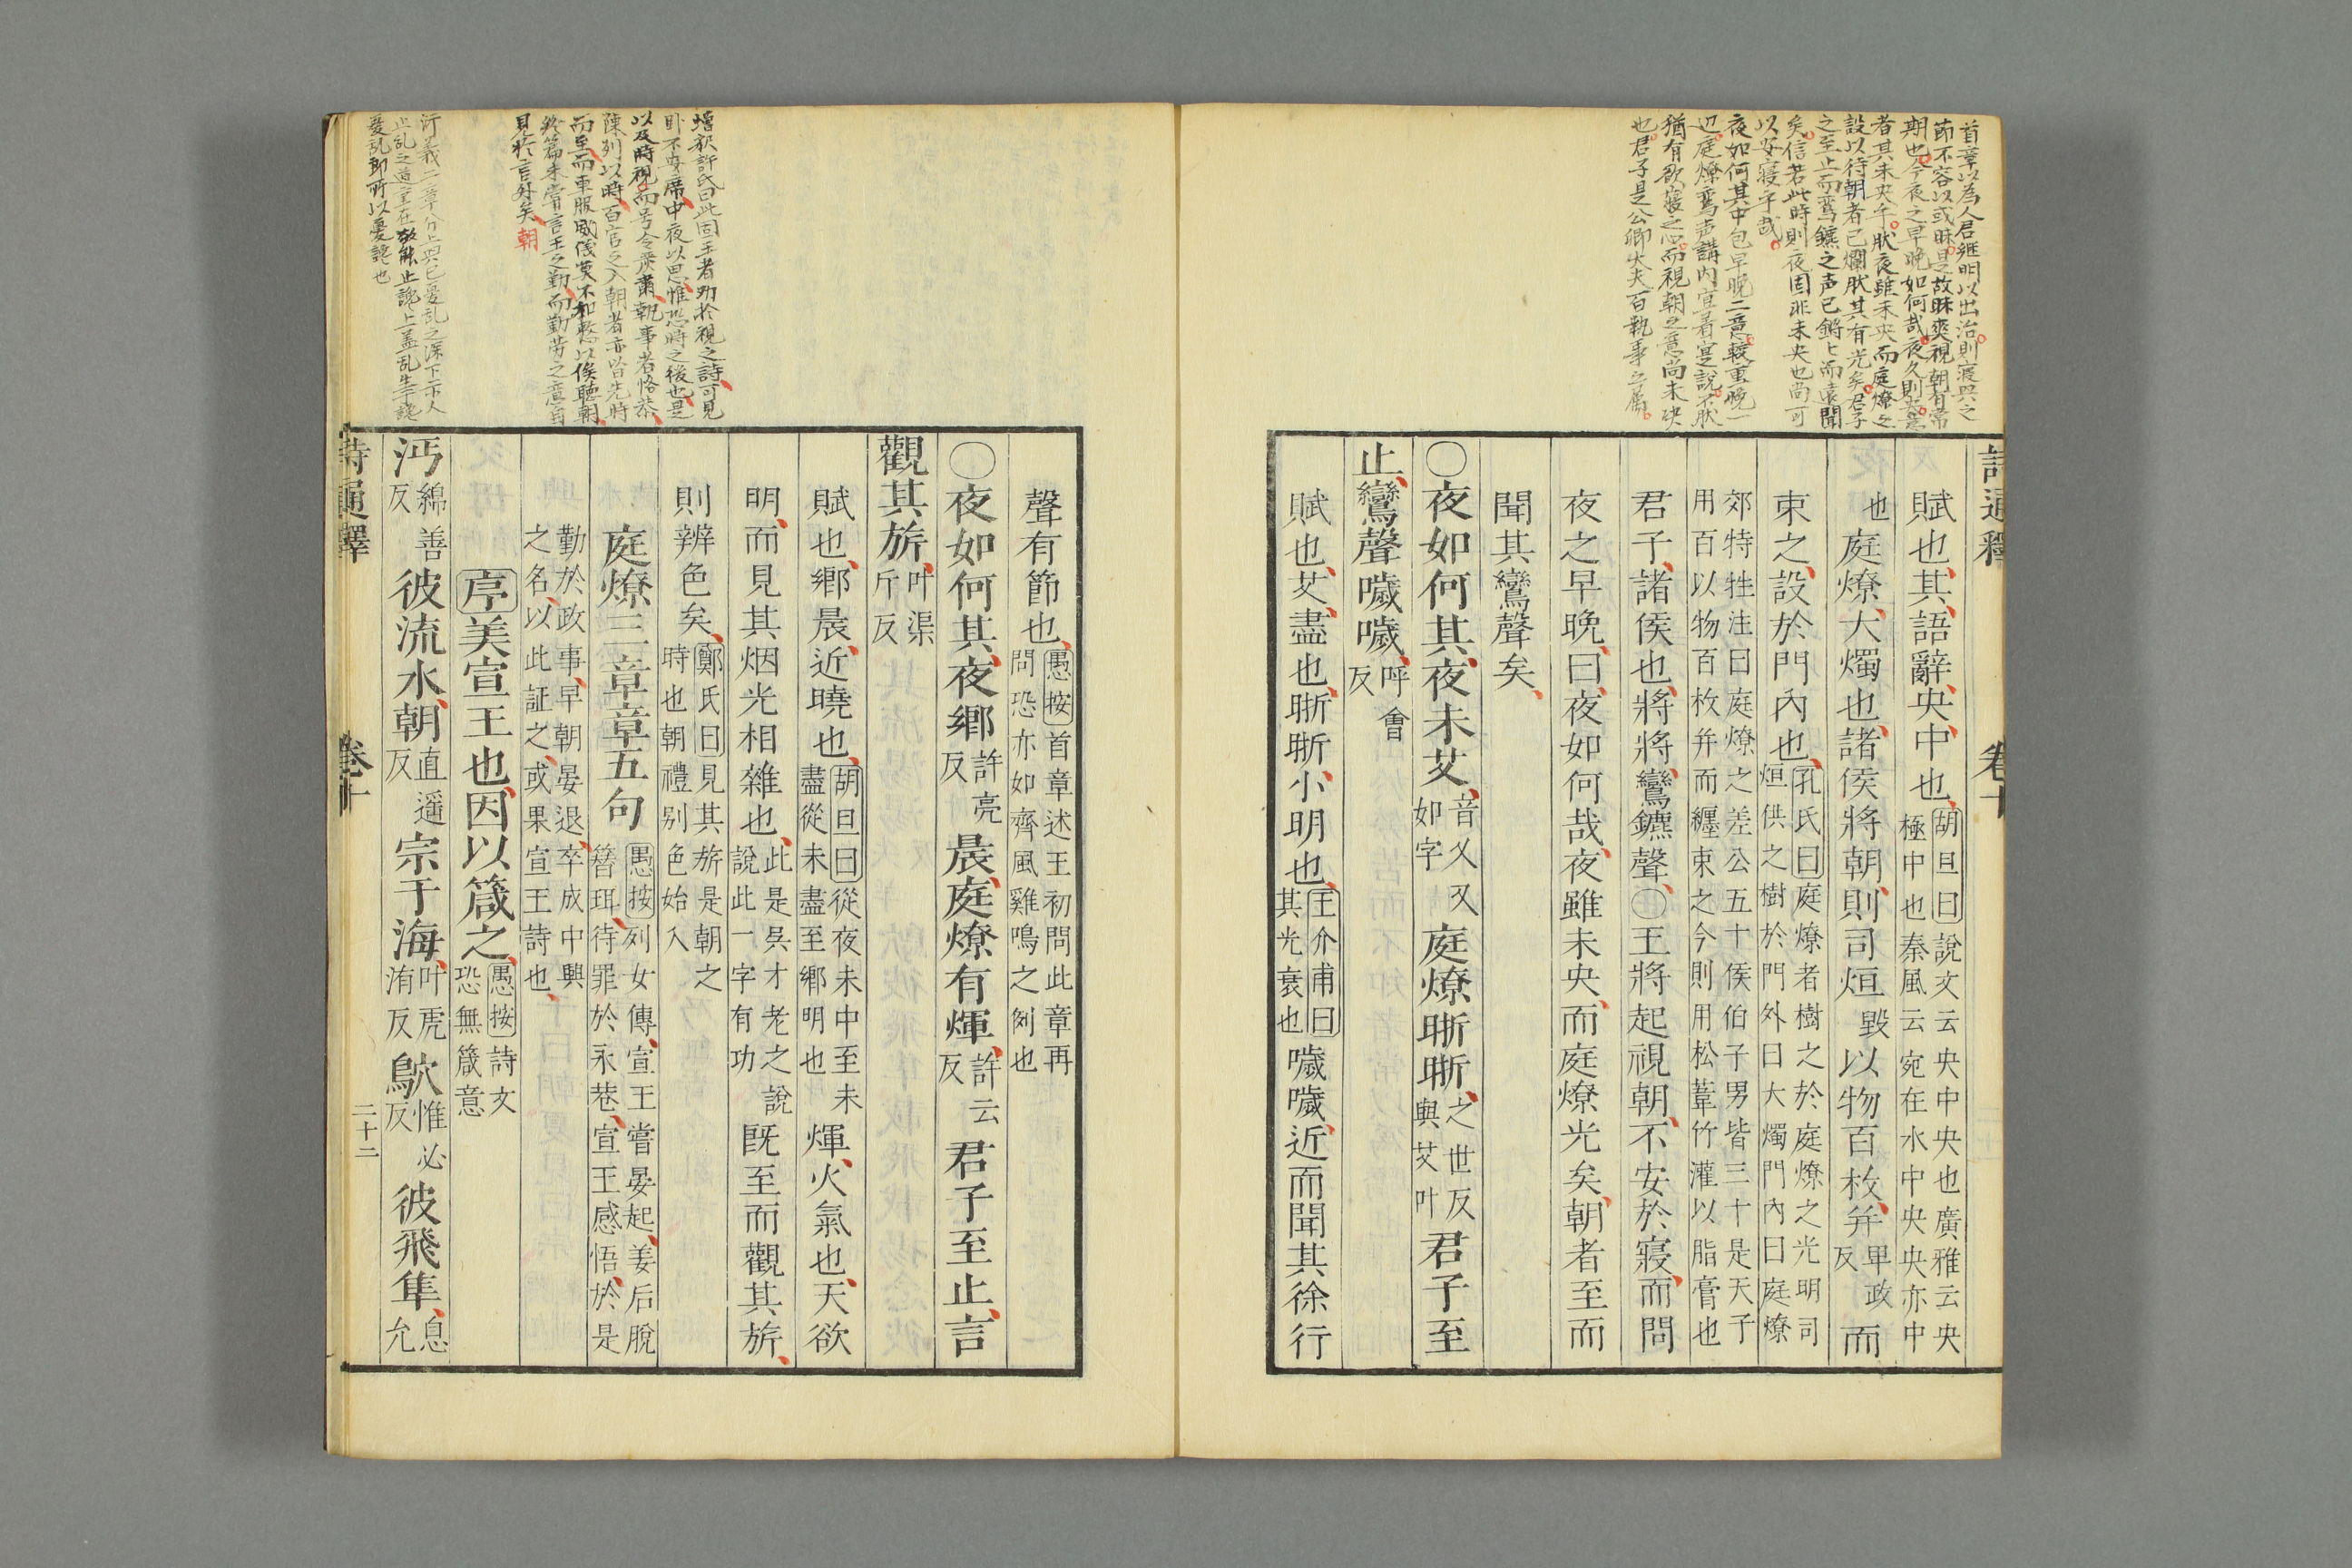 首章以為人君繼明以出治則寢興之
節不容以或昧是故昧爽視朝有常
期也今夜之早晚如何哉夜久則
者其未央乎狀夜雖未央而庭燎之
設以待朝者已爛狀其有光矣君子
之至止而鸞鑣之声已鏘〻而遠聞
矣信若此時則夜固非未央也尚可
以安寢乎哉
夜如何其中包早晚二意較重晚一
辺庭燎鸞声講內宜着寔說不狀
猶有欲寢之心而視朝之意尚未決
也君子是公卿大夫百執事之屬
詩通釋 卷十
賦也其語辭央中也胡旦曰說文云央中央也廣雅云央
極中也秦風云宛在水中央央亦中
也庭燎大燭也諸侯將朝則司烜毀以物百枚并畢政反而
束之設於門內也孔氏曰庭燎者樹之於庭燎之光明司
烜供之樹於門外曰大燭門內曰庭燎
郊特牲注曰庭燎之差公五十侯伯子男皆三十是天子
用百以物百枚并而纏束之今則用松葦竹灌以脂膏也
君子諸侯也將將鸞鑣聲○王將起視朝不安於寢而問
夜之早晚曰夜如何哉夜雖未央而庭燎光矣朝者至而
聞其鸞聲矣
○夜如何其夜未艾音乂又如字庭燎晣晣之世反與艾叶君子至
止鸞聲噦噦呼會反
賦也艾盡也晣晣小明也王介甫曰其光衰也噦噦近而聞其徐行
聲有節也愚按首章述王初問此章再
問恐亦如齊風雞鳴之例也
○夜如何其夜鄉許亮反晨庭燎有煇許云反君子至止言
觀其旂叶渠斤反
賦也鄉晨近曉也胡旦曰從夜未中至未
盡從未盡至鄉明也煇火氣也天欲
明而見其烟光相雜也此是吳才老之說
說此一字有功既至而觀其旂
則辨色矣鄭氏曰見其旂是朝之
時也朝禮別色始入
庭燎三章章五句愚按列女傳宣王嘗晏起姜后脫
簪珥待罪於永巷宣王感悟於是
勤於政事早朝晏退卒成中興
之名以此証之或果宣王詩也
序美宣王也因以箴之愚按詩文
恐無箴意
沔綿善反彼流水朝直遥反宗于海叶虎洧反鴥惟必反彼飛隼息允
詩通釋 卷十 二十二
增釈許氏曰此固王者勤於視之詩可見
卧不安席中夜以思惟恐時之後也是
以及時視而号令嚴肅執事者恪恭
陳列以時百官之入朝者亦皆先時
而至而車服威儀莫不和整以俟聽朝
終篇未嘗言王之勤而勤勞之意自
見於言外矣 朝
衍義二章分上興已憂乱之深下示人
止乱之道全在敬能止讒上盖乱生于讒
憂乱即所以憂讒也